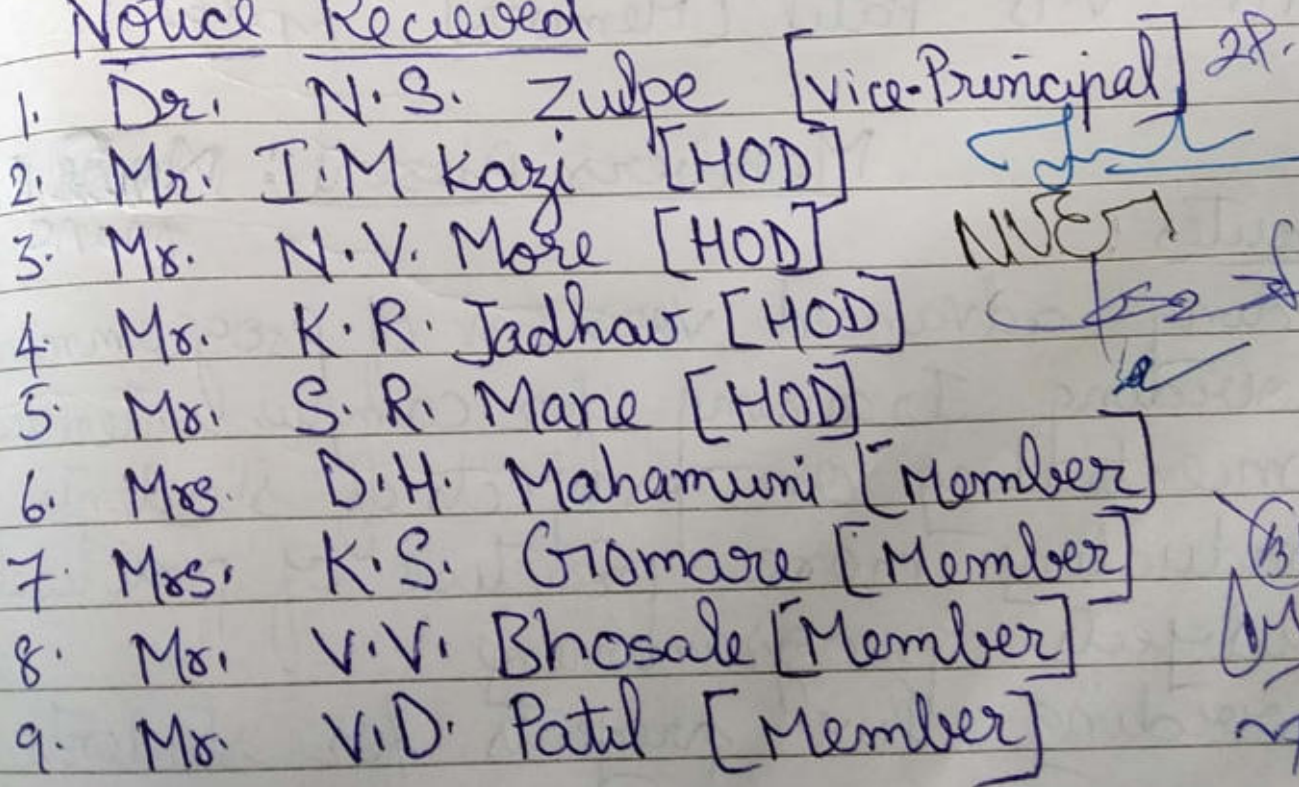 Notice Recieved
1. Dr. N.S. Zulpe [Vice-Principal] 28.
2. Mr. I.M Kazi [HOD]
3. Mr. N.V. More [HOD]
4. Mr. K.R. Jadhav [HOD]
5. Mr. S.R. Mane [HOD]
6. Mrs. D.H. Mahamuni [Member]
7. Mrs. K.S. Gomare [Member]
8. Mr. V.V. Bhosale [Member]
9. Mr. V.D. Patil [Member]